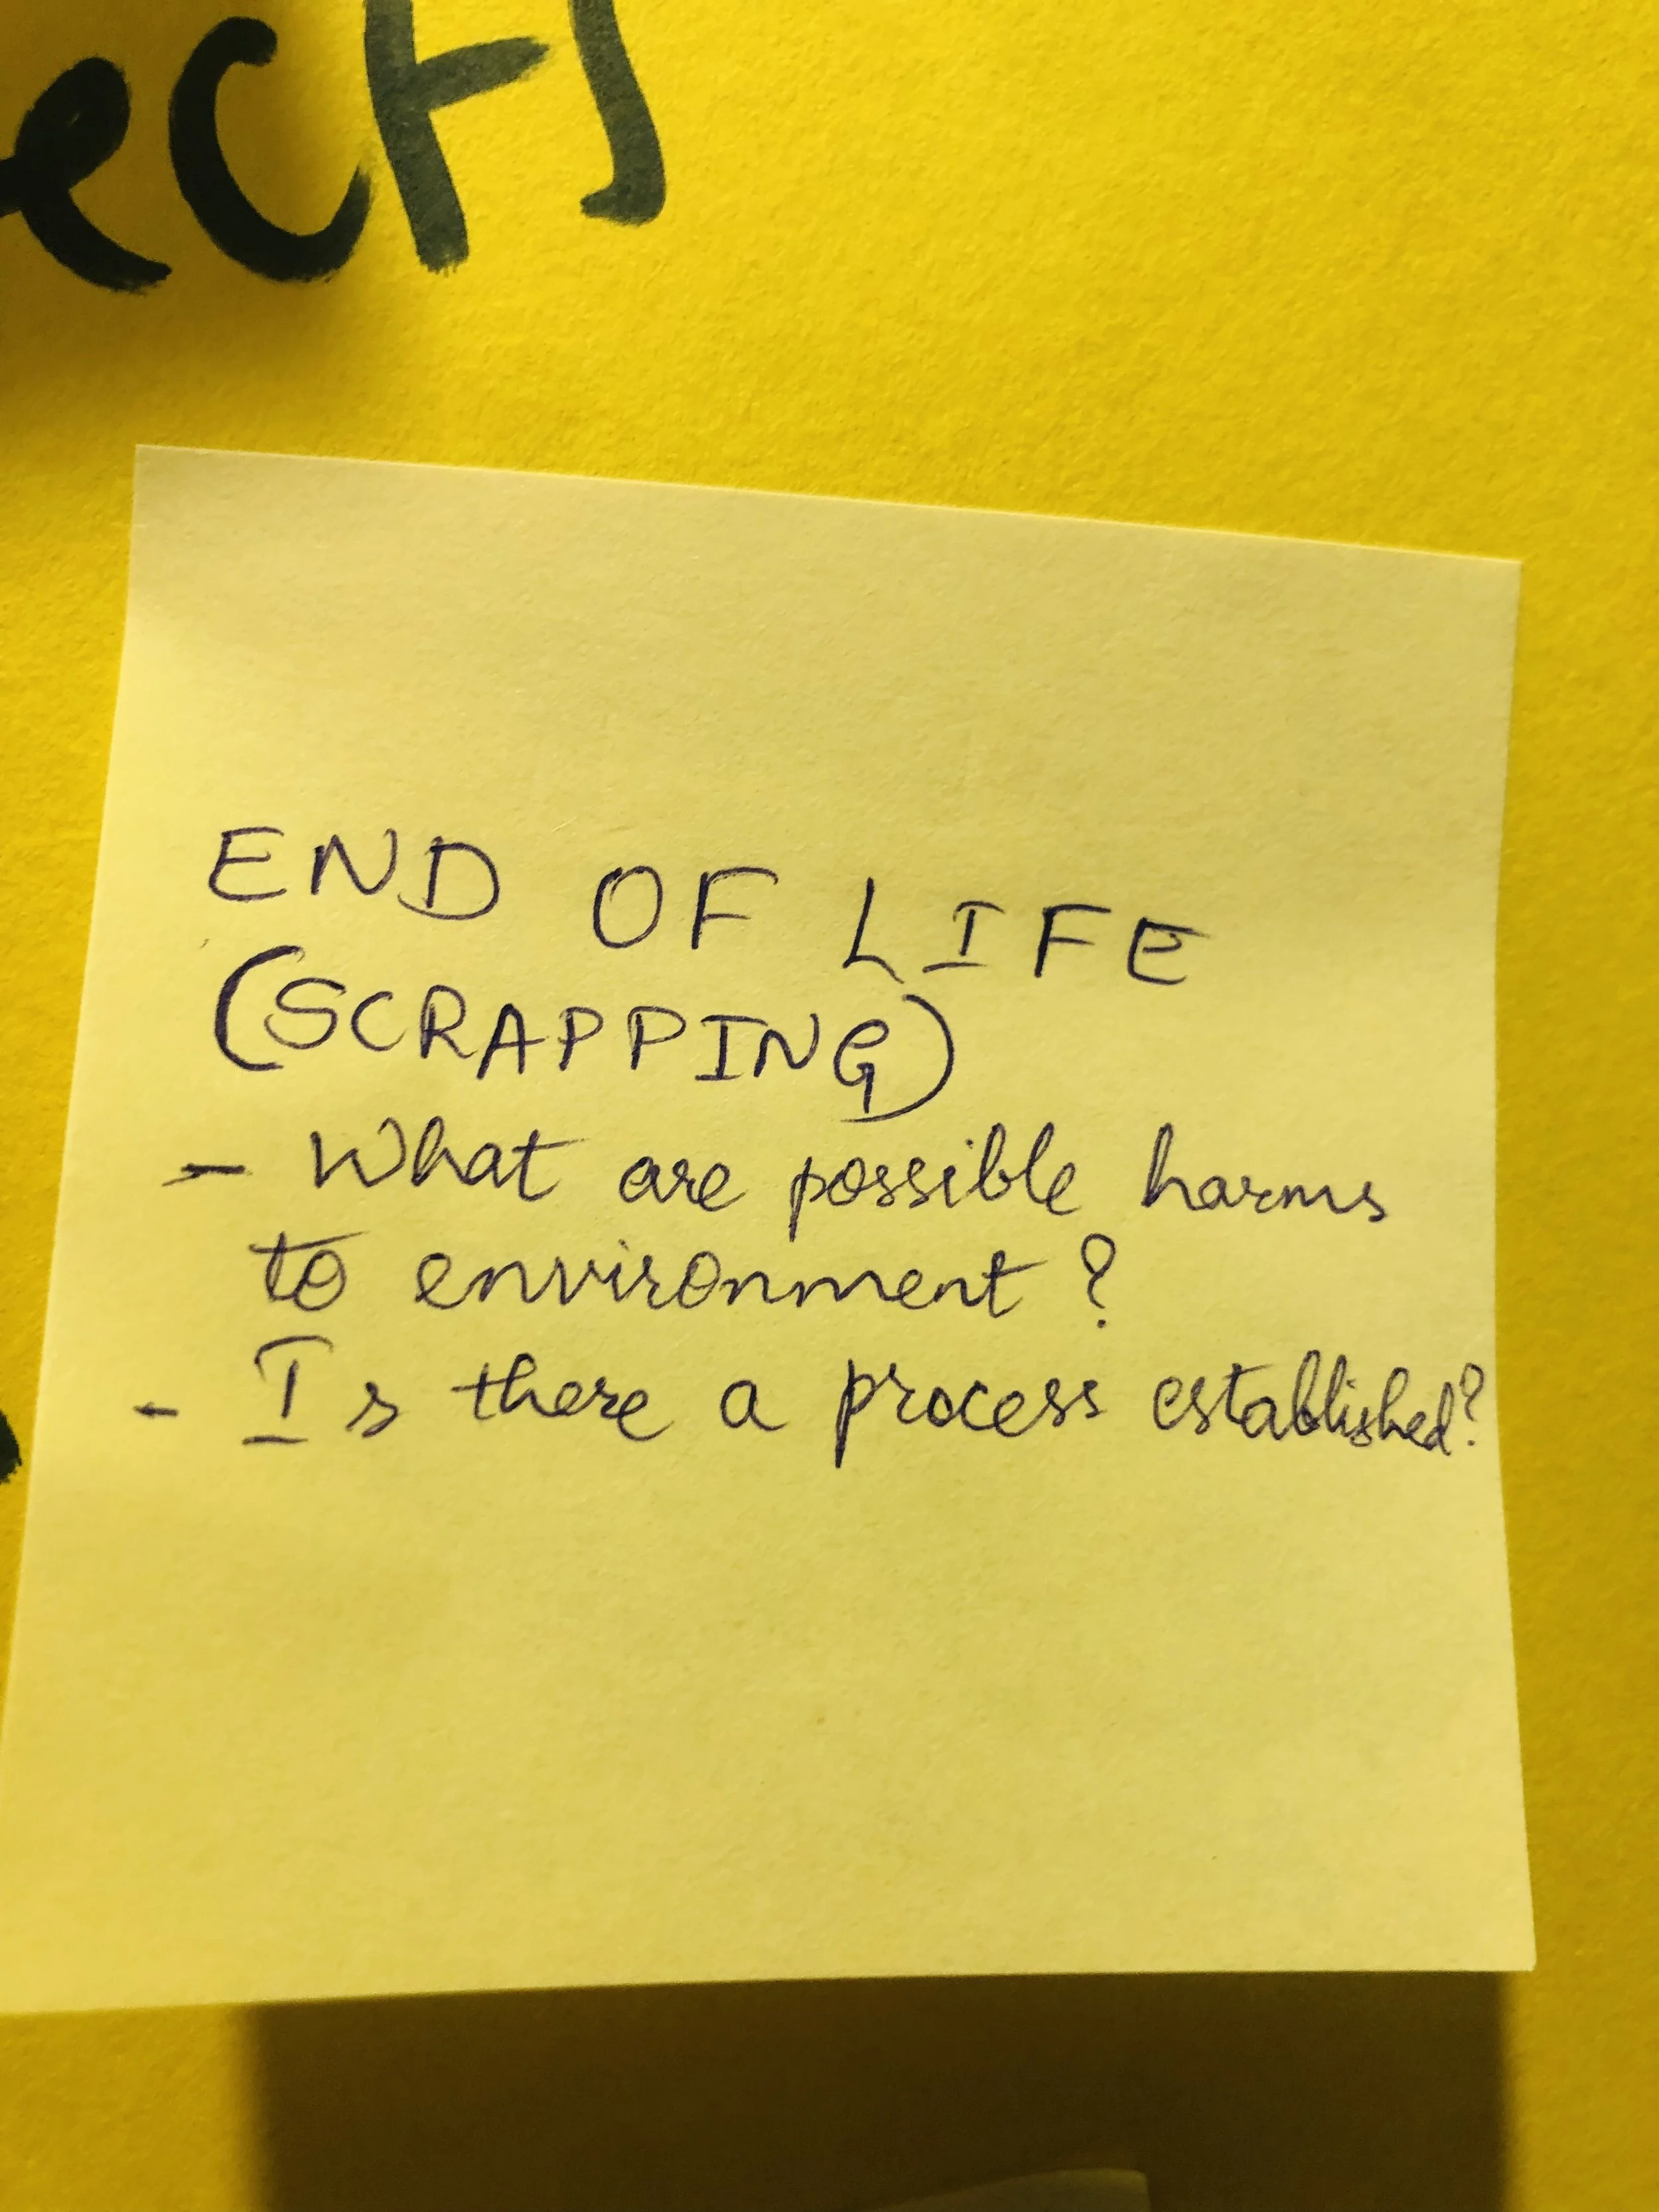 eCH
END OF LIFE
(SCRAPPING)
- What are possible harms
to environment?
- Is there a process established?